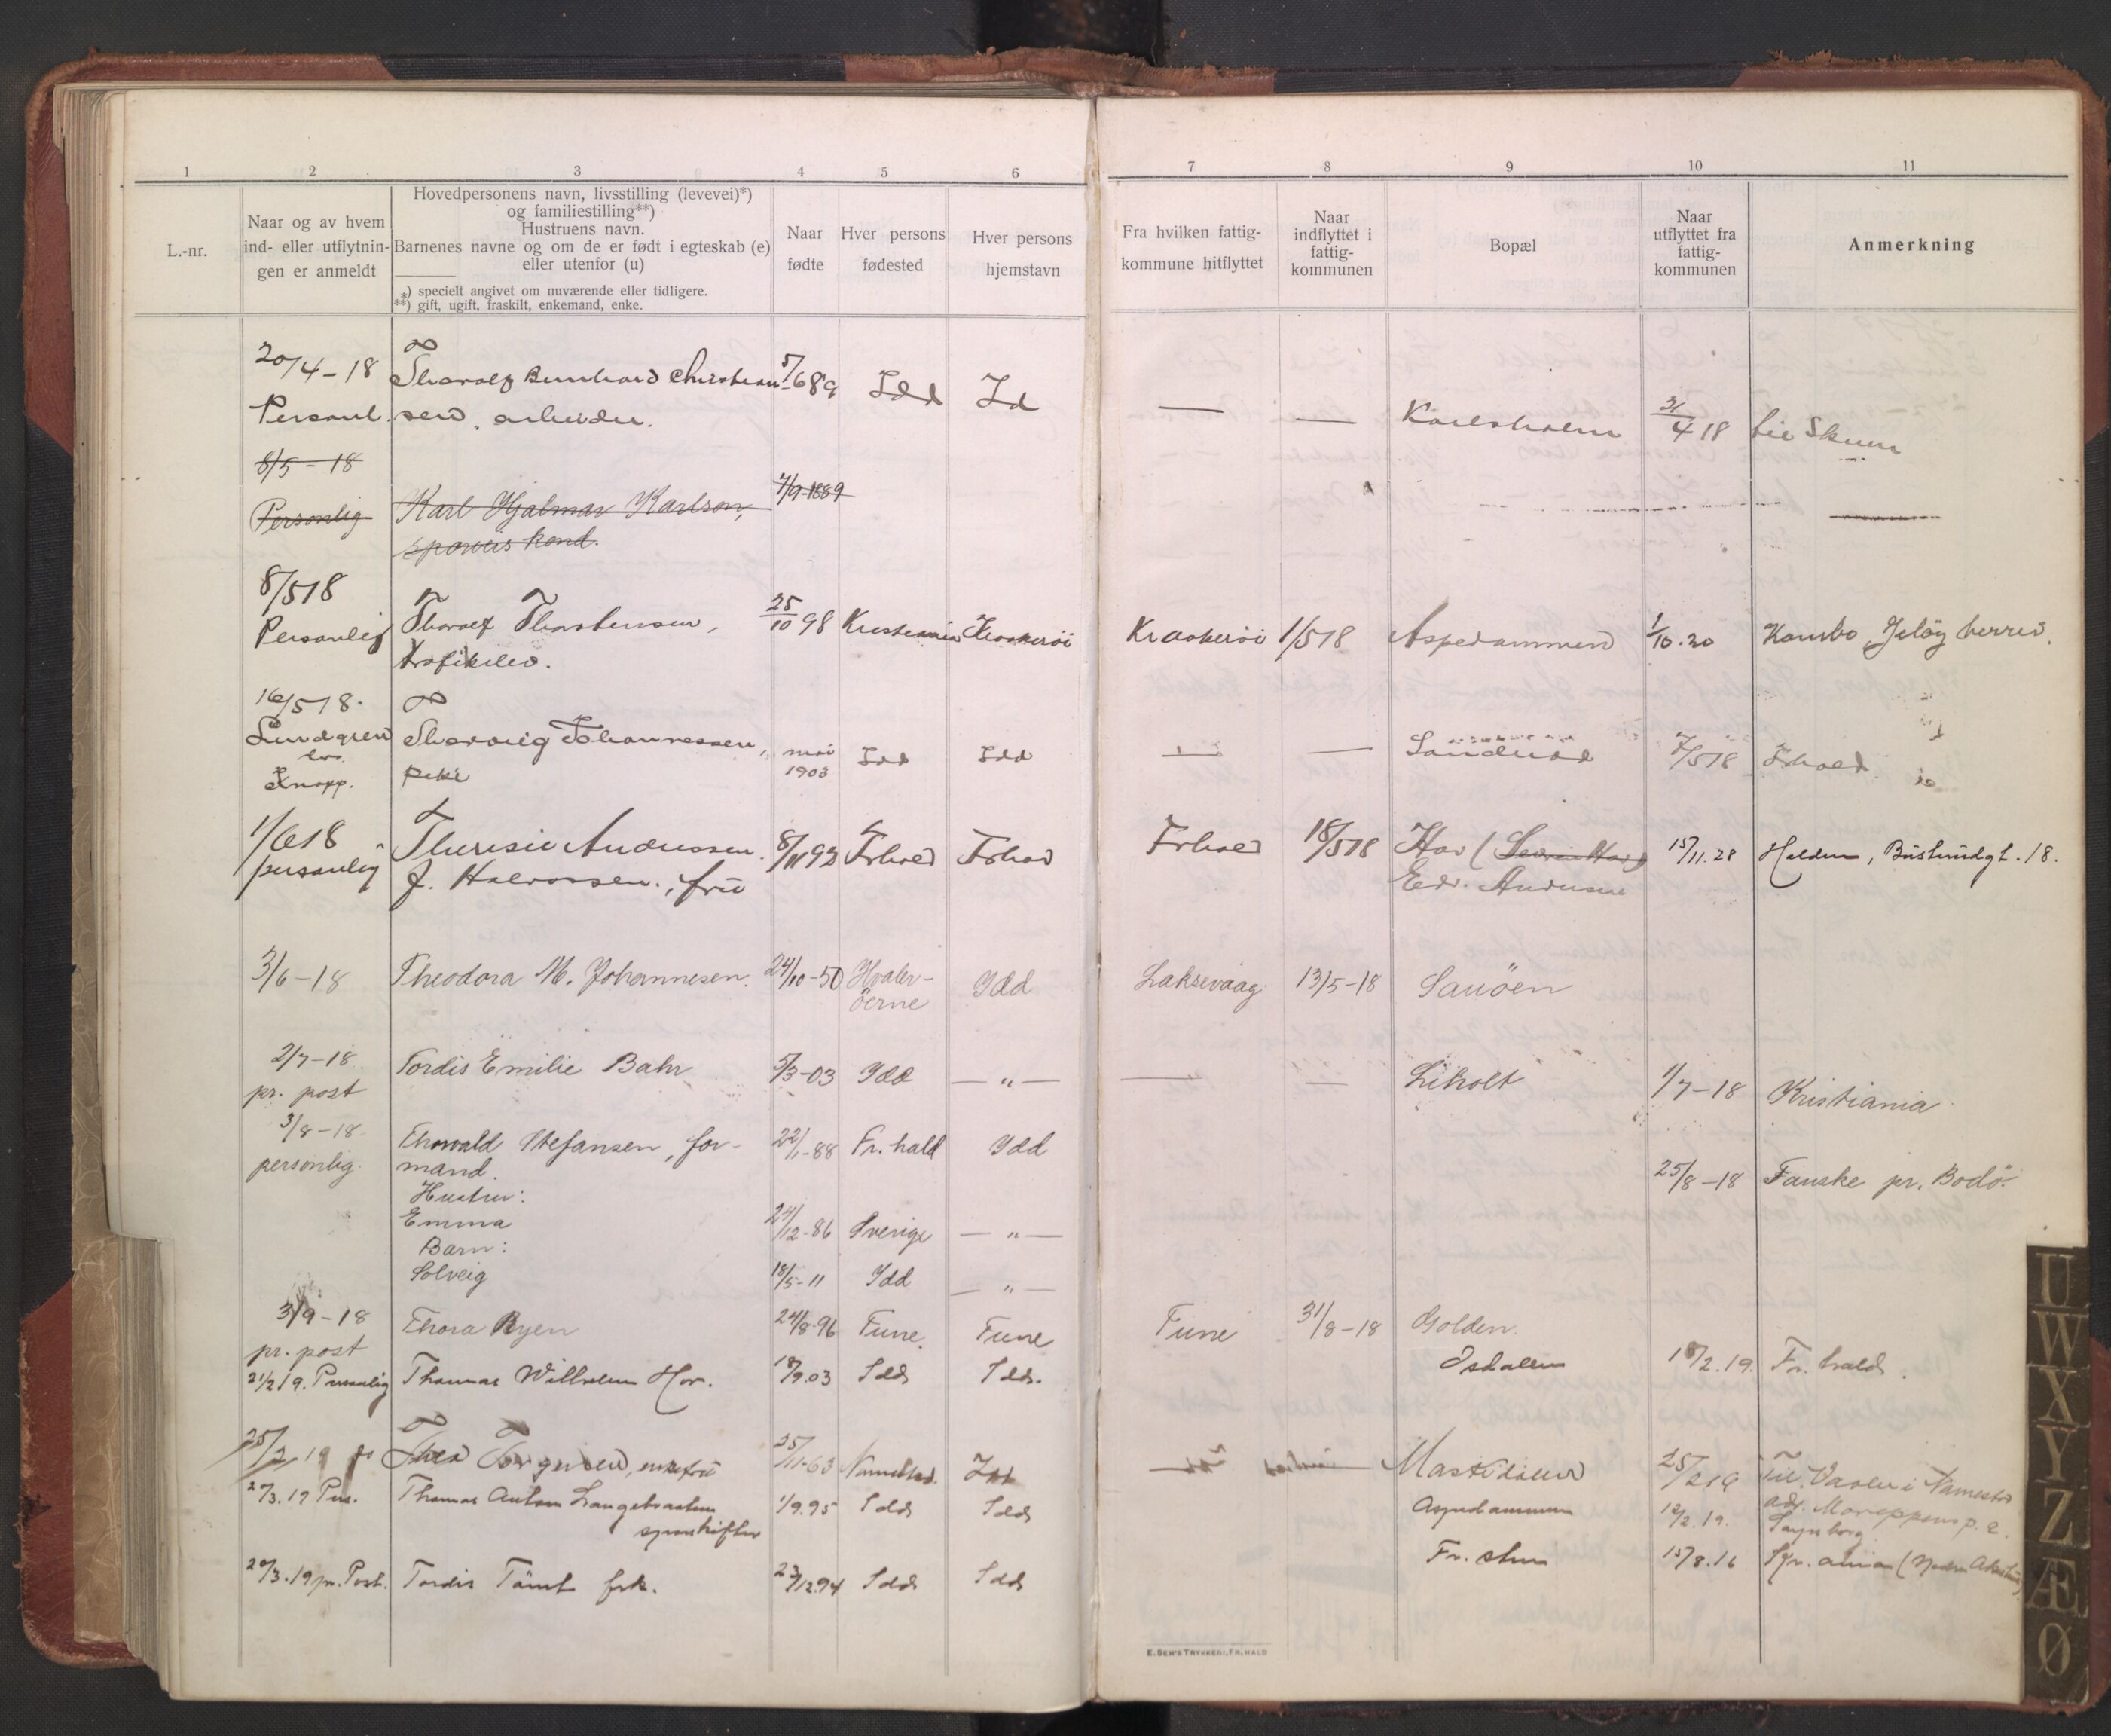 1 2 3 4 5 6 7 8 9 10 11
L.-nr.
Naar og av hvem
ind- eller utflytnin-
gen er anmeldt
Hovedpersonens navn, livsstilling (levevei)*)
og familiestilling**)
Hustruens navn.
Barnenes navne og om de er født i egteskab (e)
eller utenfor (u)
*) specielt angivet om nuværende eller tidligere.
**) gift, ugift, fraskilt, enkemand, enke.
Naar
fødte
Hver persons
fødested
Hver persons
hjemstavn
Fra hvilken fattig-
kommune hitflyttet
Naar
indflyttet i
fattig-
kommunen
Bopæl
Naar
utflyttet fra
fattig-
kommunen
Anmerkning
20/4-18 Tharalf Bernhard Christian 5/6 89 Idd Id — — Karlsholm 4 18
Personl. sen, arbeider.
8/5-18
Personlig Karl Hjalmar Karlson, 4/9-1889
8/5 18
Personlig Tharalf Thorstensen, 25/10 98 Kristiania Kraakerøi Kraakerøi 1/5 18 Aspedammen 1/10.20 Kambo Jeløy herred.
trafikelev.
16/5 18.
Lundgren Johannessen, mai 1903 Idd Idd — — 7/5 18 Frhald
Knopp. pike
1/6 18 Theresie Andersen 8/11 92 Frhald Frhald Frhald 18/5 18 Hov 15/11.28 Halden, 18.
personlig f. Halvorsen, frue Edv. Andersen
3/6-18 Theodora M. Johannesen. 24/10-50 Hvaler-
öerne Idd Laksevaag 13/5-18 Sauöen
2/7-18 Tordis Emilie Bahr 5/3-03 Idd — " — — — Liholt 1/7-18 Kristiania
pr. post
3/8-18 Thorvald Stefansen, for- 22/1-88 Fr.hald Idd
personlig. mand. 25/8-18 Fauske pr. Bodö.
Hustru:
Emma 24/12-86 Sverige — " —
Barn:
Solveig 18/5-11 Idd — " —
3/9-18 Thora Ryen 24/8-96 Tune Tune Tune 31/8-18 Golden.
pr. post
21/2 19. Personlig Thomas Wilhelm Hov. 18/9.03 Idd Idd. 18/2.19. Fr.hald.
25/2 19 Thea Torgersen, enkefrue 25/11-63 Idd 25/2 19
27/3.19 Pers. Thomas Anton 1/9.95 Idd Idd Aspedammen 12/2.19. Sarpsborg
20/3.19 pr. Post. Tordis Tömt frk. 23/12 94 Idd Idd Fr. sten 15/8.16
E. SEM'S TRYKKERI, FR.HALD
U
W
X
Y
Z
Æ
Ø